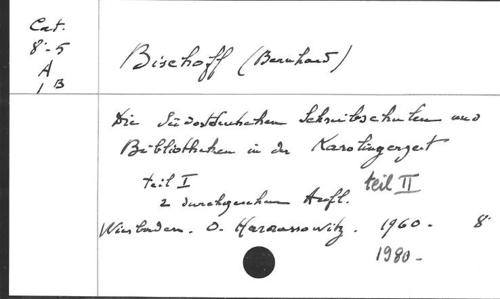 Cat.
8°-5
A
1 B
Bischoff (Bernhard)
Die Südostdeutschen Schreibschulen und
Bibliotheken in der Karolingerzeit
teil I teil II
2 durchgesehene Aufl.
Wiesbaden. O. Harrassowitz. 1960- 8°
1980-